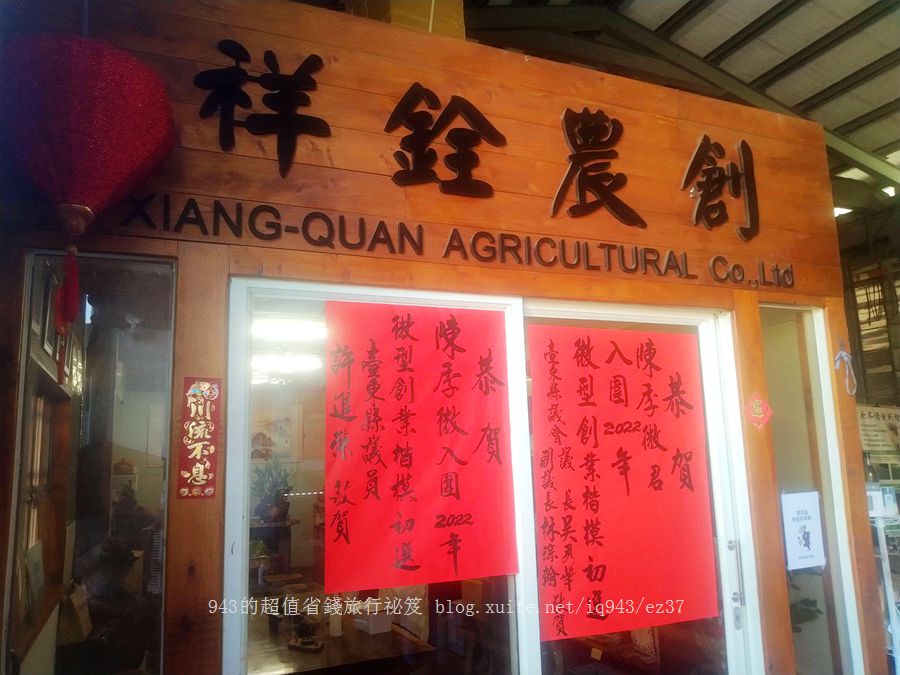 祥銓農創
XIANG-QUAN AGRICULTURAL Co.,Ltd
川流不息
恭賀
陳季微入圍2022年
微型創業楷模初選
臺東縣議員
許進榮 敬賀
恭賀
陳季微君
入圍2022年
微型創業楷模初選
臺東縣議會
議長吳秀華
副議長林琮翰 敬賀
943的超值省錢旅行祕笈 blog.xuite.net/iq943/ez37